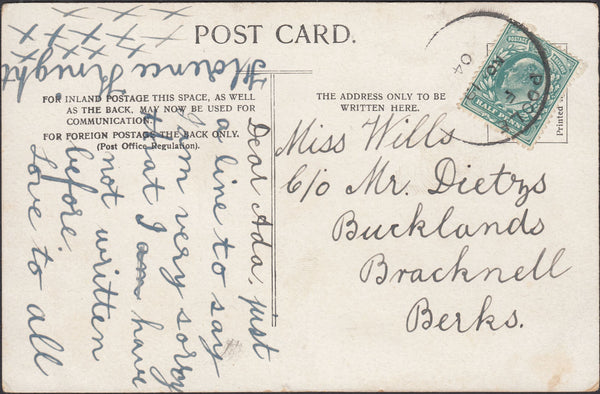 POST CARD.
FOR INLAND POSTAGE THIS SPACE, AS WELL
AS THE BACK, MAY NOW BE USED FOR
COMMUNICATION.
FOR FOREIGN POSTAGE THE BACK ONLY.
(Post Office Regulation).
THE ADDRESS ONLY TO BE
WRITTEN HERE.
Dear Ada, just
a line to say
I am very sorry
that I am have
not written
before.
Love to all
Florence Knight
X X X X X X
Miss Wills
C/o Mr. Dietzs
Bucklands
Bracknell
Berks.
POSTAGE
HALF PENNY
04
Printed